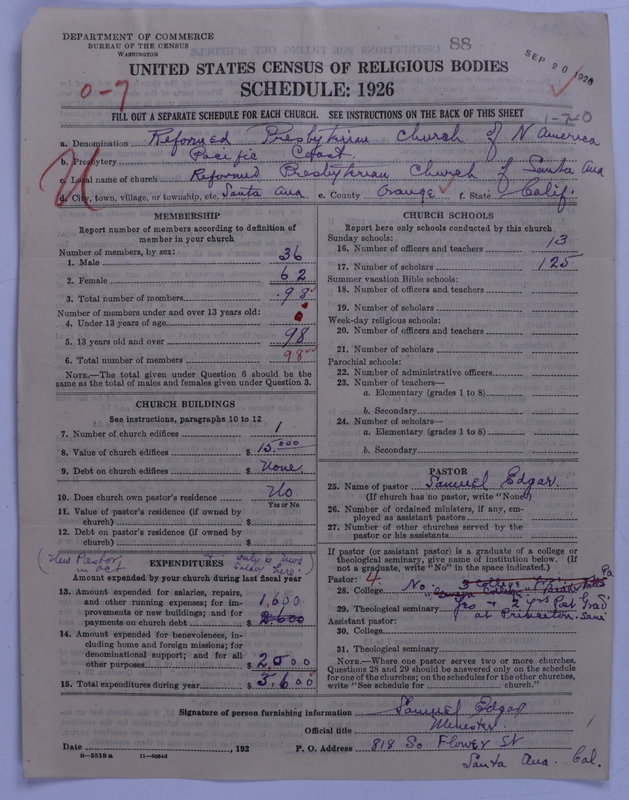 DEPARTMENT OF COMMERCE
BUREAU OF THE CENSUS
WASHINGTON
88
SEP 20 1926
UNITED STATES CENSUS OF RELIGIOUS BODIES
0-7
SCHEDULE: 1926
FILL OUT A SEPARATE SCHEDULE FOR EACH CHURCH. SEE INSTRUCTIONS ON THE BACK OF THIS SHEET
1-7-0
a. Denomination Reformed Presbyterian Church of N America
b. Presbytery Pacific Coast
c. Local name of church Reformed Presbyterian Church of Santa Ana
d. City, town, village, or township, etc. Santa Ana e. County Orange f. State Calif.
MEMBERSHIP
Report number of members according to definition of
member in your church
Number of members, by sex:
1. Male 36
2. Female 62
3. Total number of members 98
Number of members under and over 13 years old:
4. Under 13 years of age
5. 13 years old and over 98
6. Total number of members 98
NOTE.—The total given under Question 6 should be the
same as the total of males and females given under Question 3.
CHURCH BUILDINGS
See instructions, paragraphs 10 to 12
7. Number of church edifices 1
8. Value of church edifices $ 15,000
9. Debt on church edifices $ None
10. Does church own pastor's residence No
Yes or No
11. Value of pastor's residence (if owned by
church) $
12. Debt on pastor's residence (if owned by
church) $
(New Pastor
EXPENDITURES
Amount expended by your church during last fiscal year
13. Amount expended for salaries, repairs,
and other running expenses; for im-
provements or new buildings; and for
payments on church debt $ 1,600
2600
14. Amount expended for benevolences, in-
cluding home and foreign missions; for
denominational support; and for all
other purposes $ 2,000
15. Total expenditures during year $ 3,600
CHURCH SCHOOLS
Report here only schools conducted by this church
Sunday schools:
16. Number of officers and teachers 13
17. Number of scholars 125
Summer vacation Bible schools:
18. Number of officers and teachers
19. Number of scholars
Week-day religious schools:
20. Number of officers and teachers
21. Number of scholars
Parochial schools:
22. Number of administrative officers
23. Number of teachers—
a. Elementary (grades 1 to 8)
b. Secondary
24. Number of scholars—
a. Elementary (grades 1 to 8)
b. Secondary
PASTOR
25. Name of pastor Samuel Edgar.
(If church has no pastor, write "None")
26. Number of ordained ministers, if any, em-
ployed as assistant pastors
27. Number of other churches served by the
pastor or his assistants
If pastor (or assistant pastor) is a graduate of a college or
theological seminary, give name of institution below. (If
not a graduate, write "No" in the space indicated.)
Pastor: 4
28. College No.
29. Theological seminary yes + 2 yrs Post Grad
at Princeton Sem
Assistant pastor:
30. College
31. Theological seminary
NOTE.—Where one pastor serves two or more churches,
Questions 28 and 29 should be answered only on the schedule
for one of the churches; on the schedules for the other churches,
write "See schedule for church."
Signature of person furnishing information Samuel Edgar
Official title Minister
Date , 192 P. O. Address 818 So Flower St
8—5518a 11—4094d
Santa Ana. Cal.